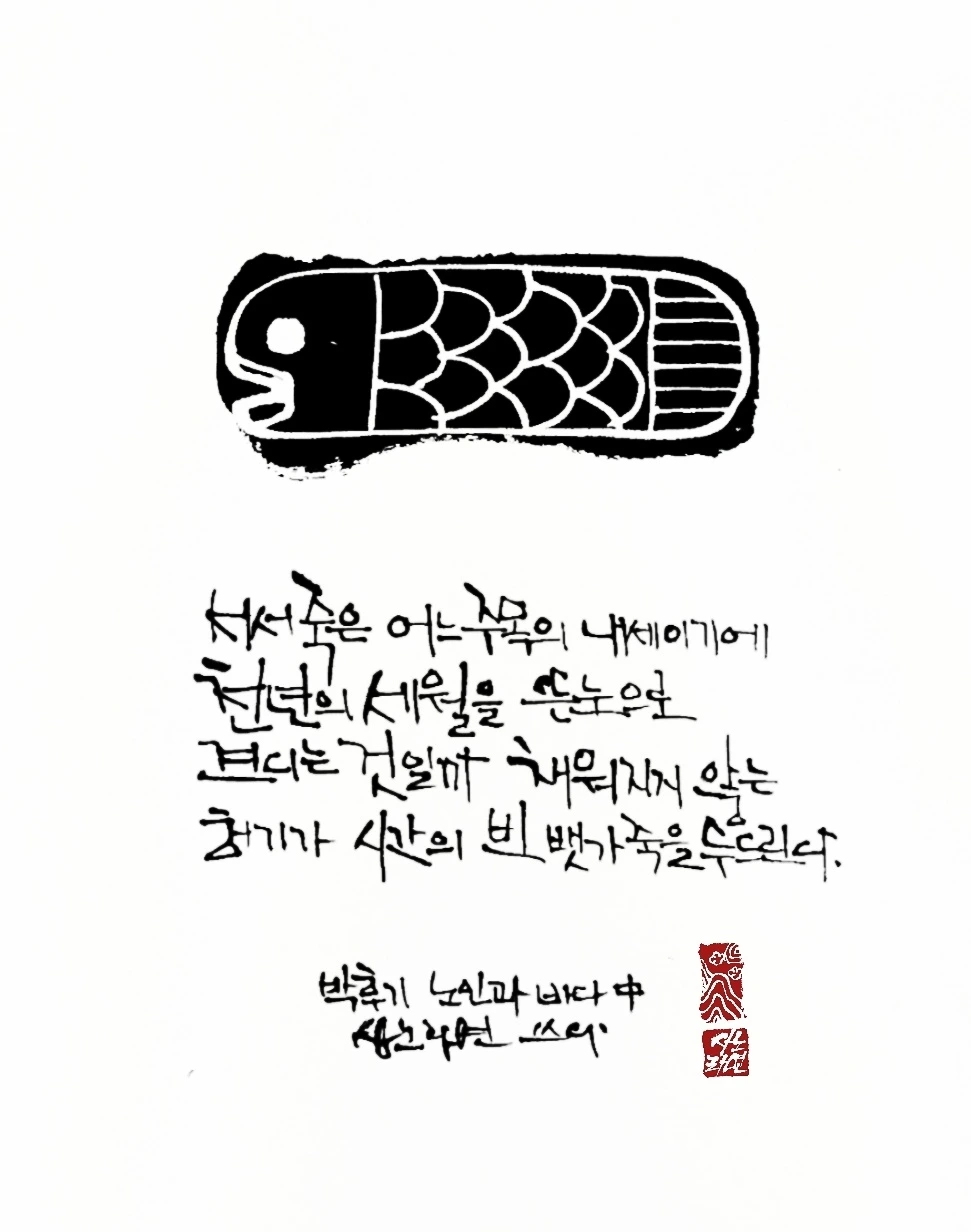 서서 죽은 어느 주목의 내세이기에
천년의 세월을 뜬눈으로
견디는 것일까 채워지지 않는
허기가 시간의 빈 뱃가죽을 두드린다.
박후기 노인과 바다 中
쓰다.